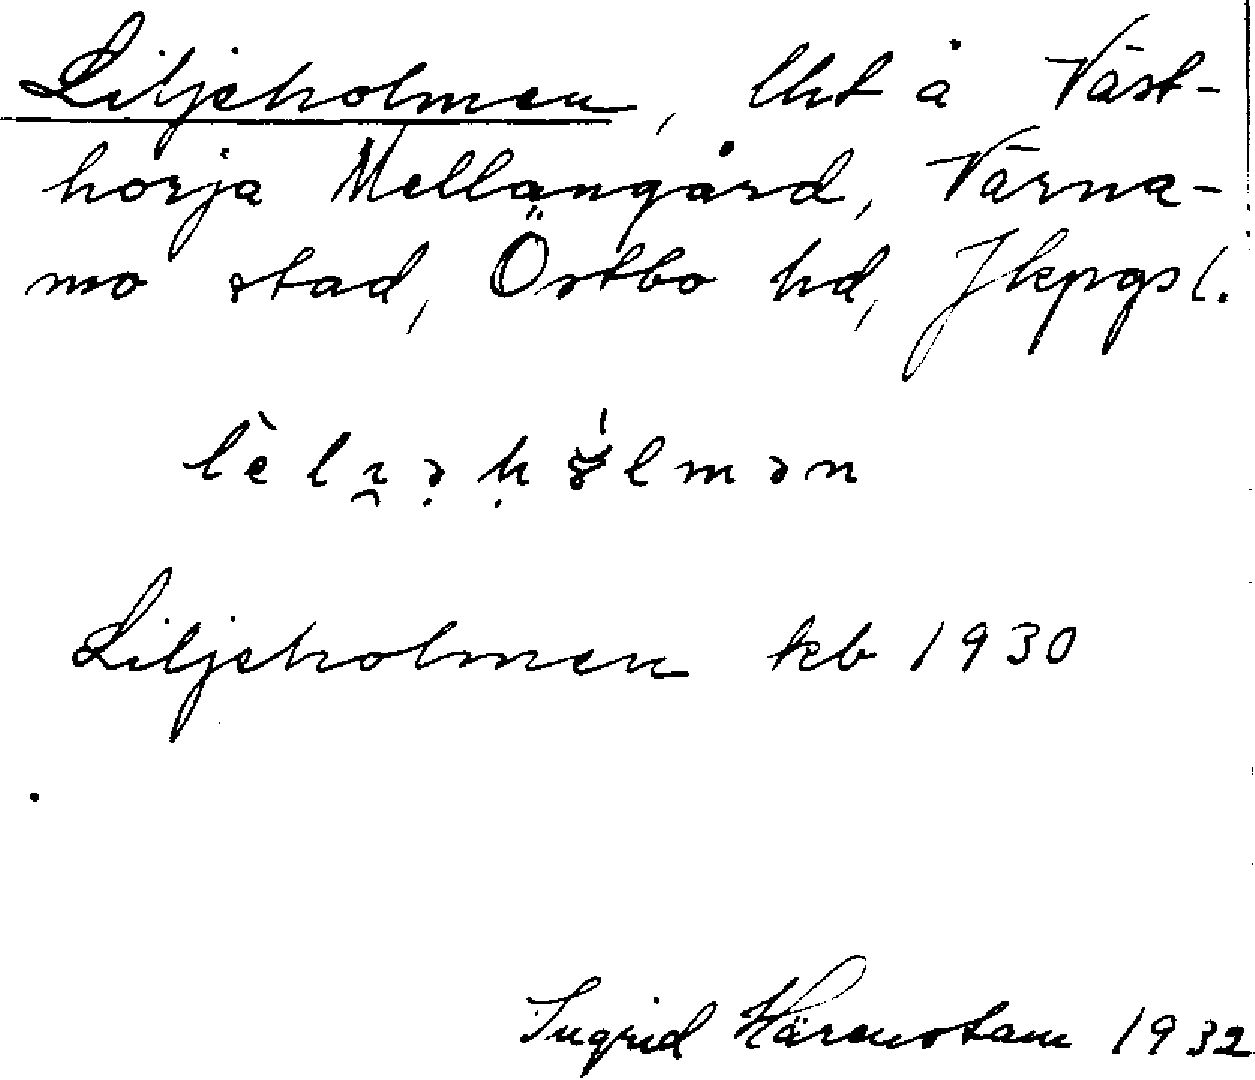 Liljeholmen, lht å Väst-
horja Mellangård, Värna-
mo stad, Östbo hd, Jkpgs l.
Liljeholmen kb 1930
Ingrid 1932